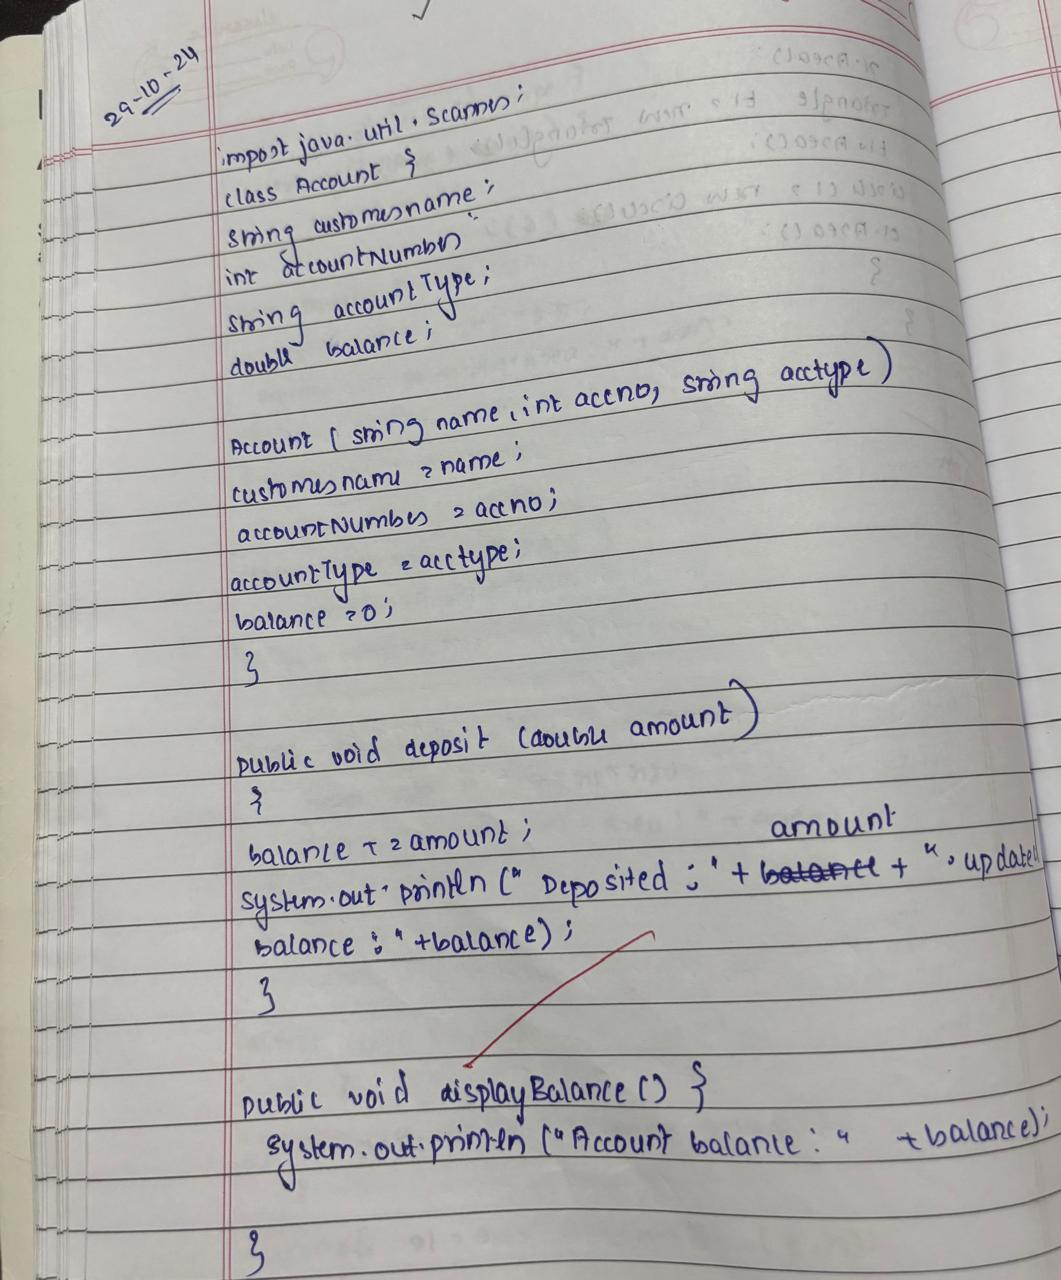 29-10-24
import java.util.Scanner;
class Account {
string customername;
int accountNumber;
string accountType;
double balance;
Account (string name, int accno, string acctype)
customername = name;
accountNumber = accno;
accountType = acctype;
balance = 0;
}
public void deposit (double amount)
{
balance += amount;
amount
system.out.println (" Deposited : " + balance + " . update
balance : " +balance);
}
public void displayBalance () {
system.out.println ("Account balance : " +balance);
}